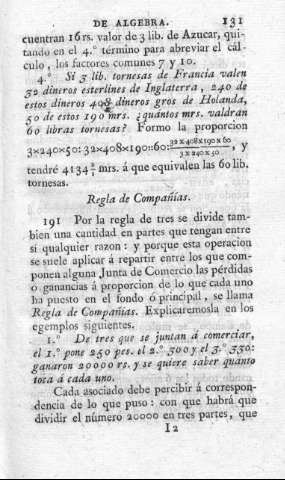 DE ALGEBRA. 131
cuentran 16 rs. valor de 3 lib. de Azucar, qui-
tando en el 4.º término para abreviar el cál-
culo, los factores comunes 7 y 10.
4.º Si 3 lib. tornesas de Francia valen
32 dineros esterlines de Inglaterra, 240 de
estos dineros 408 dineros gros de Holanda,
50 de estos 190 mrs. ¿quantos mrs. valdrán
60 libras tornesas? Formo la proporcion
3×240×50:32×408×190::60:32×408×190×60/3×240×50, y
tendré 4134 2/5 mrs. á que equivalen las 60 lib.
tornesas.
Regla de Compañías.
191 Por la regla de tres se divide tam-
bien una cantidad en partes que tengan entre
sí qualquier razon: y porque esta operacion
se suele aplicar á repartir entre los que com-
ponen alguna Junta de Comercio las pérdidas
ó ganancias á proporcion de lo que cada uno
ha puesto en el fondo ó principal, se llama
Regla de Compañías. Explicaremosla en los
egemplos siguientes.
1.º De tres que se juntan á comerciar,
el 1.º pone 250 pes. el 2.º 300 y el 3.º 330:
ganaron 20000 rs. y se quiere saber quánto
toca á cada uno.
Cada asociado debe percibir á correspon-
dencia de lo que puso: con que habrá que
dividir el número 20000 en tres partes, que
I2